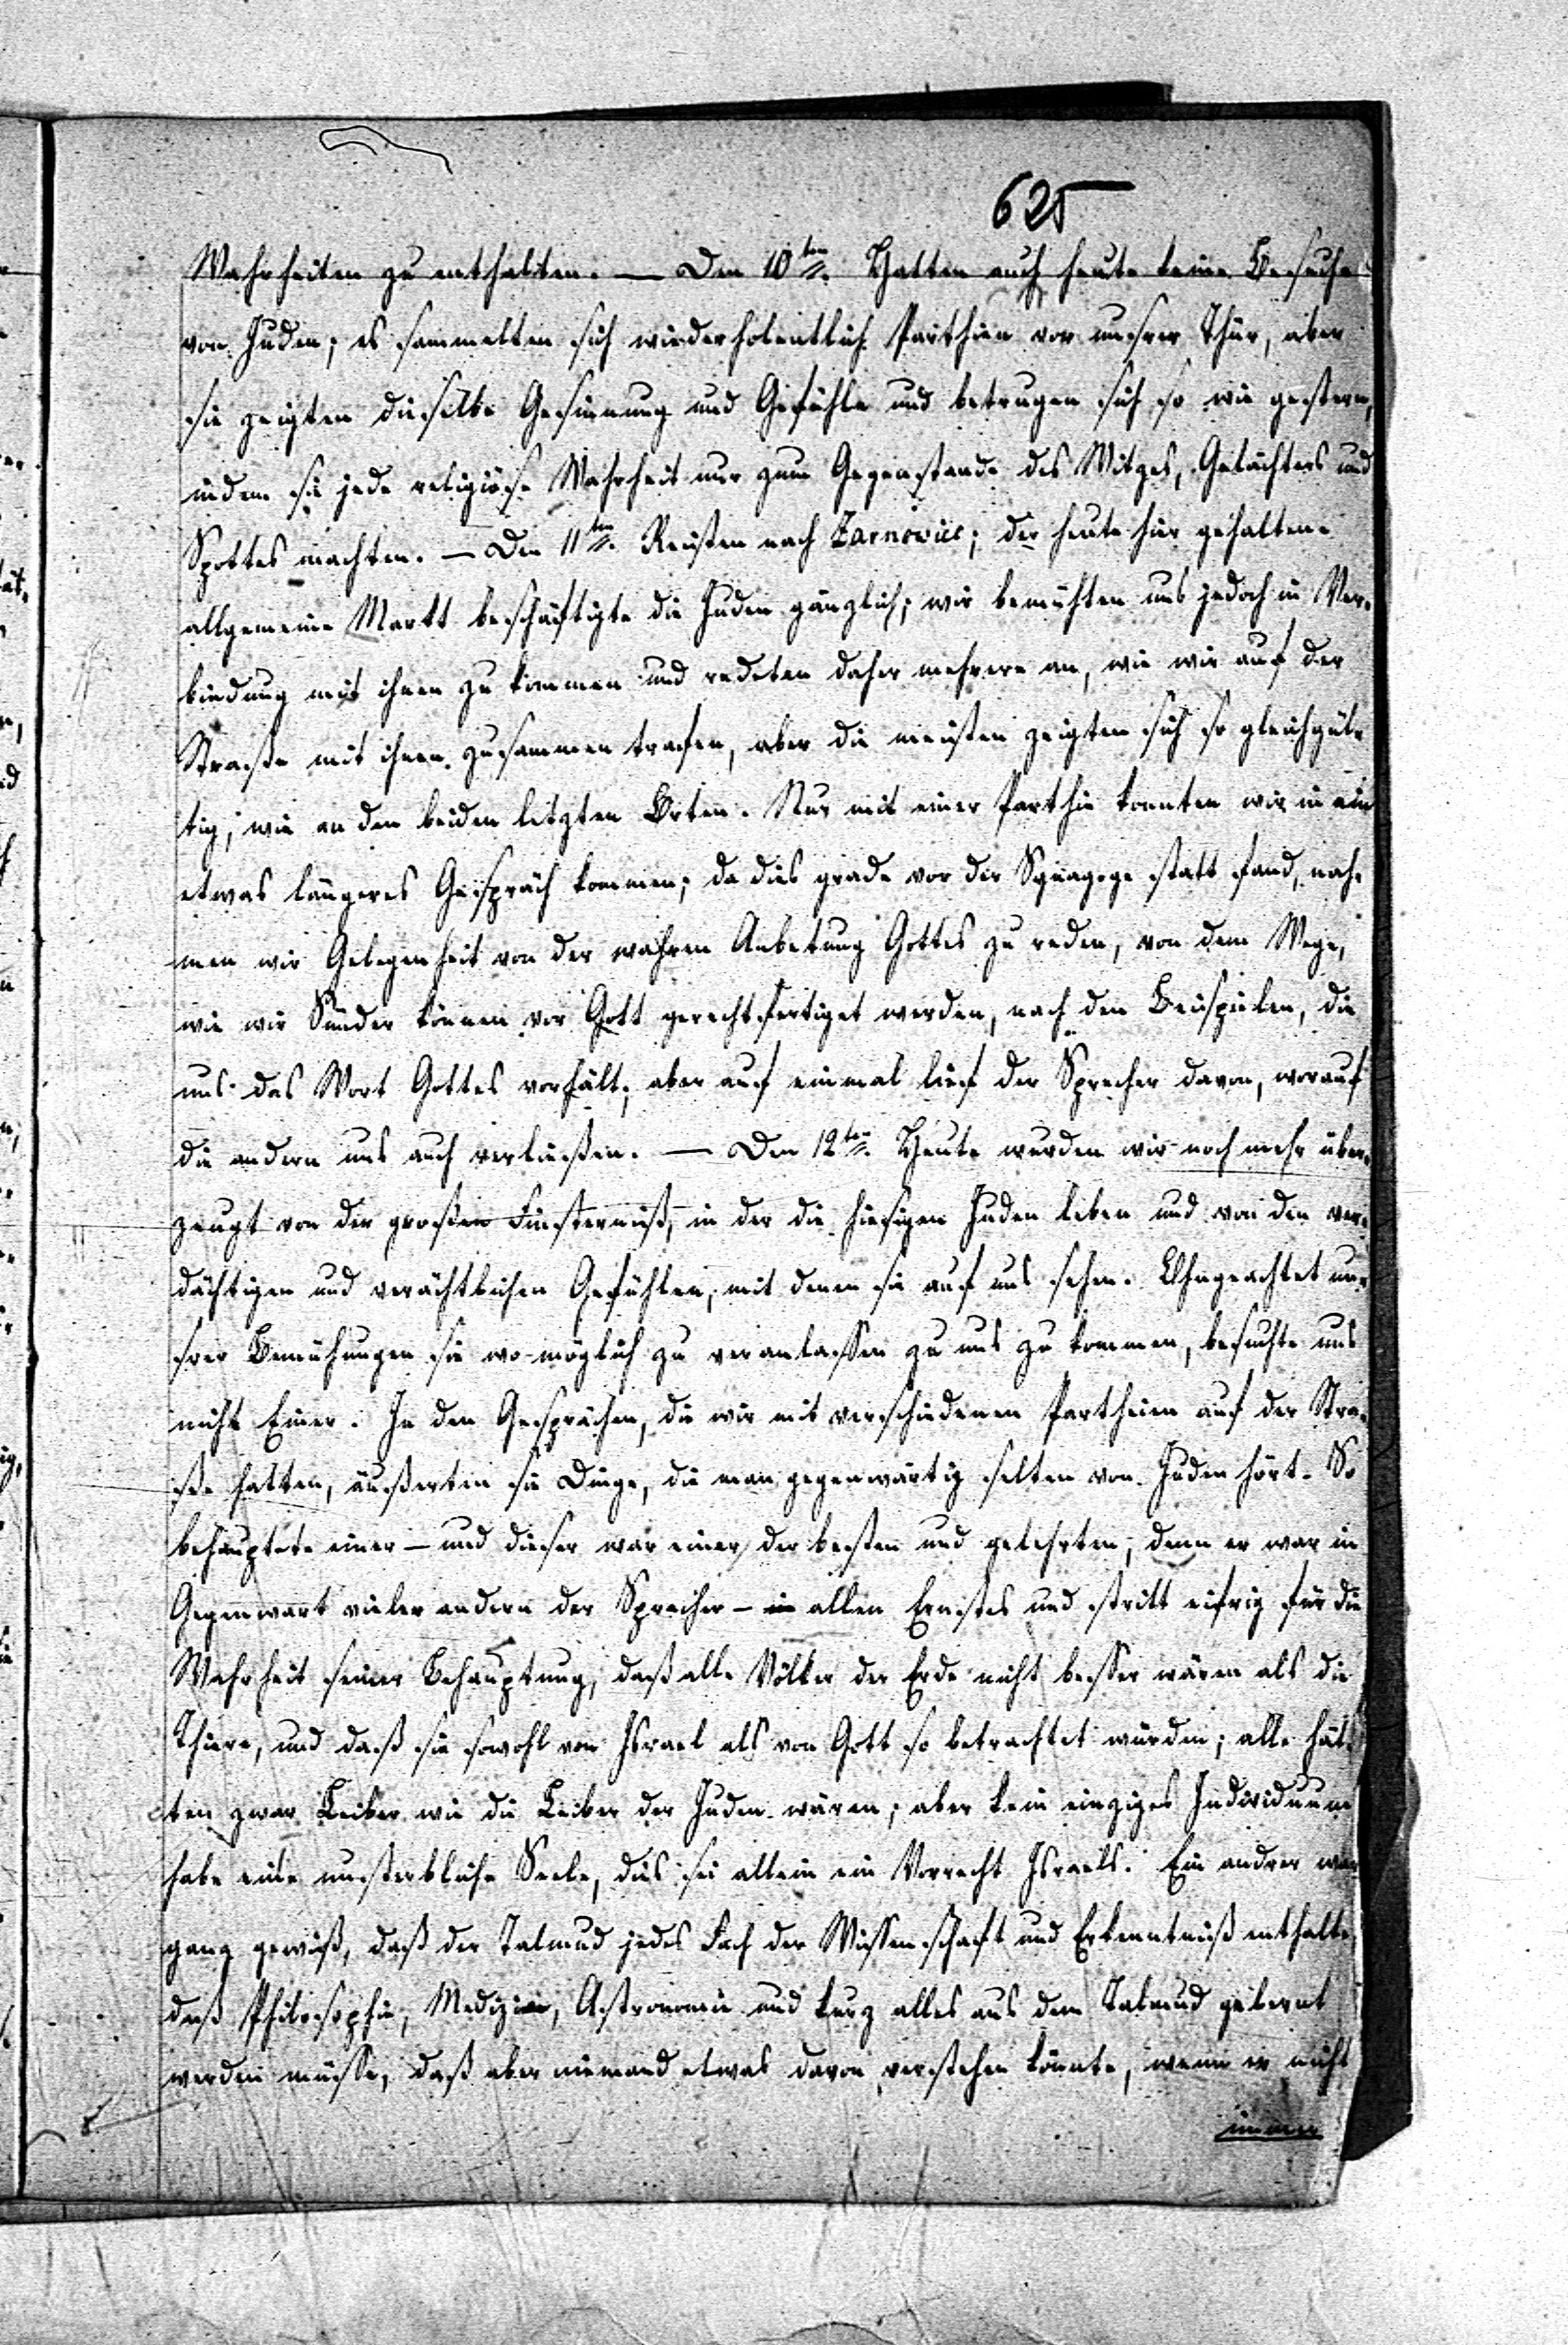 625
Wahrheiten zu enthalten. — Den 10ten. Hatten auch heute keine Besuche
von Juden; es sammelten sich wiederholentlich Parthien vor unsrer Thür, aber
sie zeigten dieselbe Gesinnung und Gefühle und betrugen sich so wie gestern,
indem sie jede religiöse Wahrheit nur zum Gegenstande des Witzes, Gelächters und
Spottes machten. — Den 11ten. Reisten nach Zarnowiec; der heute hier gehaltene
allgemeine Markt beschäftigte die Juden gänzlich; wir bemühten uns jedoch in Ver-
bindung mit ihnen zu kommen und redeten daher mehrere an, wie wir auf der
Straße mit ihnen zusammen trafen, aber die meisten zeigten sich so gleichgül-
tig, wie an den beiden letzten Orten. Nur mit einer Parthie konnten wir in ein
etwas längeres Gespräch kommen; da dies grade vor der Synagoge statt fand, nah-
men wir Gelegenheit von der wahren Anbetung Gottes zu reden, von dem Wege,
wie wir Sünder können vor Gott gerechtfertiget werden, nach den Beispielen, die
uns das Wort Gottes vorhält; aber auf einmal lief der Sprecher davon, worauf
die andern uns auch verließen. — Den 12ten. Heute wurden wir noch mehr über-
zeugt von der großen Finsterniß, in der die hiesigen Juden leben und von den ver-
dächtigen und verächtlichen Gefühlen, mit denen sie auf uns sehen. Ohngeachtet un-
srer Bemühungen sie wo möglich zu veranlassen zu uns zu kommen, besuchte uns
nicht Einer. In den Gesprächen, die wir mit verschiedenen Partheien auf der Stra-
ße hatten, äußerten sie Dinge, die man gegenwärtig selten von Juden hört. So
behauptete einer — und dieser war einer der besten und gelehrten, denn er war in
Gegenwart vieler andern der Sprecher — in allen Ernstes und stritt eifrig für die
Wahrheit seiner Behauptung, daß alle Völker der Erde nicht besser wären als die
Thiere, und daß sie sowohl von Israel als von Gott so betrachtet würden; alle hät-
ten zwar Leiber wie die Leiber der Juden wären; aber kein einziges Individuum
habe eine unsterbliche Seele, dies sei allein ein Vorrecht Israels. Ein andrer war
ganz gewiß, daß der Talmud jedes Fach der Wissenschaft und Erkenntniß enthalte,
daß Philosophie, Medizin, Astronomie und kurz alles aus dem Talmud gelernt
werden müsse, daß aber niemand etwas davon verstehen könnte, wenn er nicht
immer